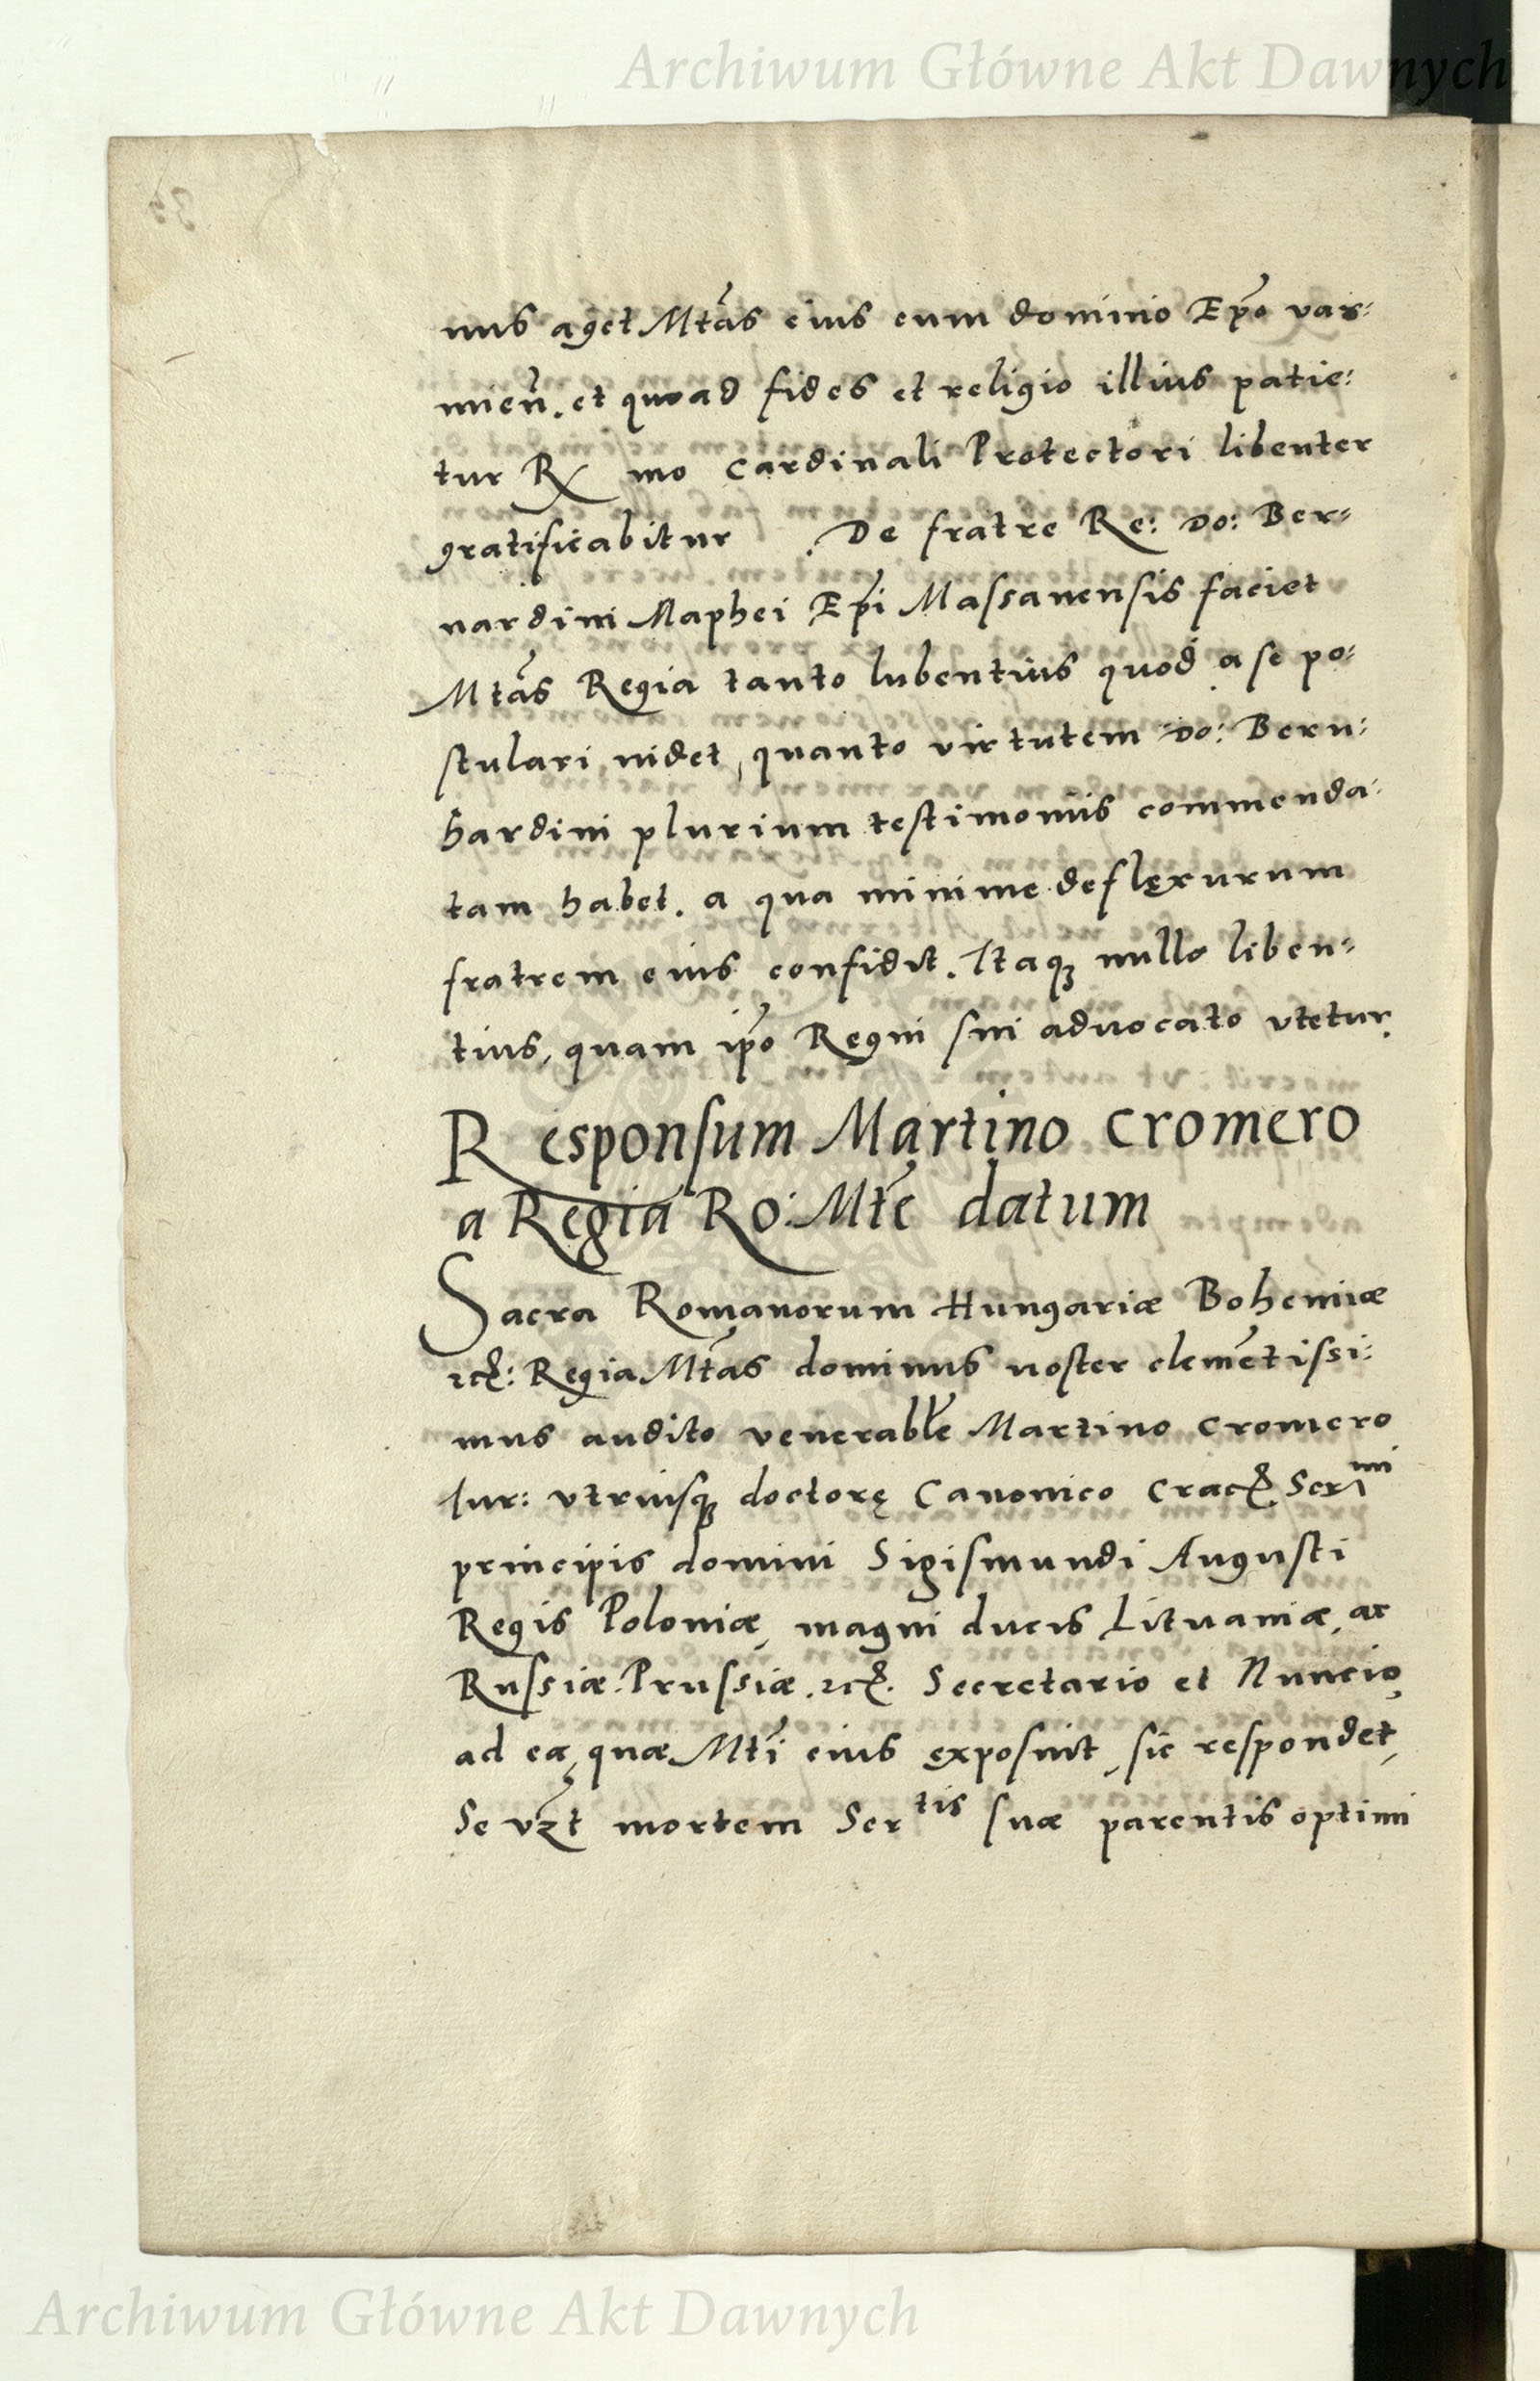 Archiwum Główne Akt Dawnych
nus aget Mtãs eius cum dominio Ep̃o var:
mien̄. et quoad fides et religio illius patie:
tur Rx mo Cardinali Protectori libenter
gratificabitur . De fratre Re: Do: Ber:
nardini Maphei Ep̃i Massanensis faciet
Mtãs Regia tanto lubentius quod a se po:
stulari uidet, quanto virtutem Do: Bern:
hardini plurium testimoniis commenda:
tam habet. a qua minime deflęxurum
fratrem eius confidit. Itaqꝫ nullo liben:
tius, quam ip̃o Regni sui aduocato vtetur.
Responsum Martino Cromero
a Regia Ro: Mtẽ datum
Sacra Romanorum Hungariæ Bohemiæ
etc̃: Regia Mtãs dominus noster clemẽtissi:
mus audito venerabl̃e Martino Cromero
Iur: vtriusqꝫ doctorę Canonico Crac̃. Sermi
principis domini Sigismundi Augusti
Regis Poloniæ, magni ducis Lituaniæ, ac
Russiæ. Prussiæ. etc̃. Secretario et Nuncio,
ad ea, quæ Mtĩ eius exposuit, sic respondet,
Se vꝫt mortem Sertis suæ parentis optimi
Archiwum Główne Akt Dawnych